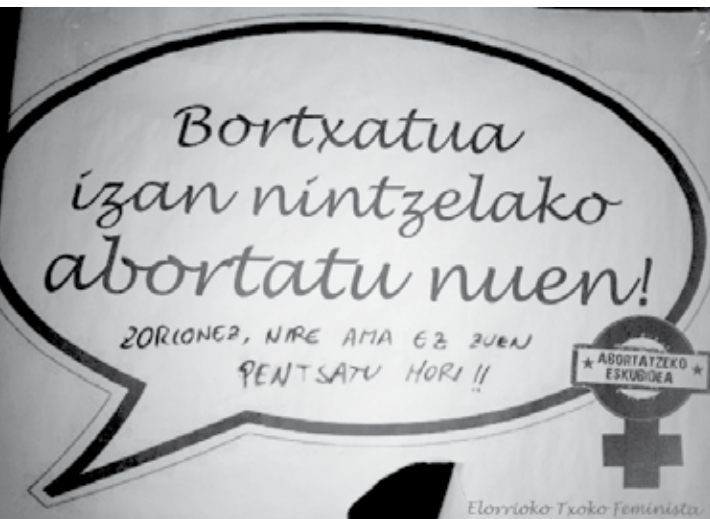 Bortxatua
izan nintzelako
abortatu nuen!
ZORIONEZ, NIRE AMA EZ ZUEN
PENTSATU HORI!!
ABORTATZEKO
ESKUBIDEA
Elorrioko Txoko Feminista